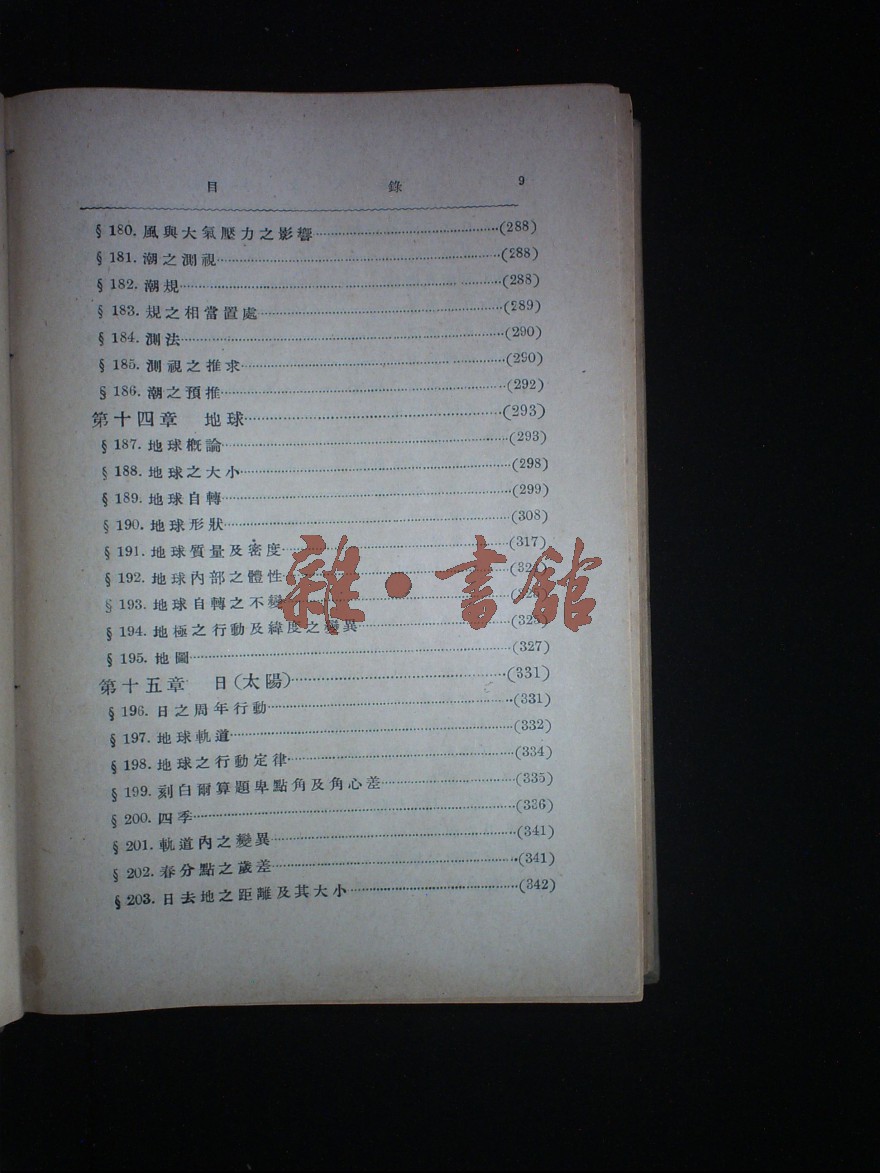 目 錄 9
§ 180. 風與大氣壓力之影響……(288)
§ 181. 潮之測視……(288)
§ 182. 潮規……(288)
§ 183. 規之相當置處……(289)
§ 184. 測法……(290)
§ 185. 測視之推求……(290)
§ 186. 潮之預推……(292)
第十四章 地球……(293)
§ 187. 地球概論……(293)
§ 188. 地球之大小……(298)
§ 189. 地球自轉……(299)
§ 190. 地球形狀……(308)
§ 191. 地球質量及密度……(317)
§ 192. 地球內部之體性……
§ 193. 地球自轉之不變……
§ 194. 地極之行動及緯度之變異……
§ 195. 地圖……(327)
第十五章 日(太陽)……(331)
§ 196. 日之周年行動……(331)
§ 197. 地球軌道……(332)
§ 198. 地球之行動定律……(334)
§ 199. 刻白爾算題卑點角及角心差……(335)
§ 200. 四季……(336)
§ 201. 軌道內之變異……(341)
§ 202. 春分點之歲差……(341)
§ 203. 日去地之距離及其大小……(342)
雜·書館